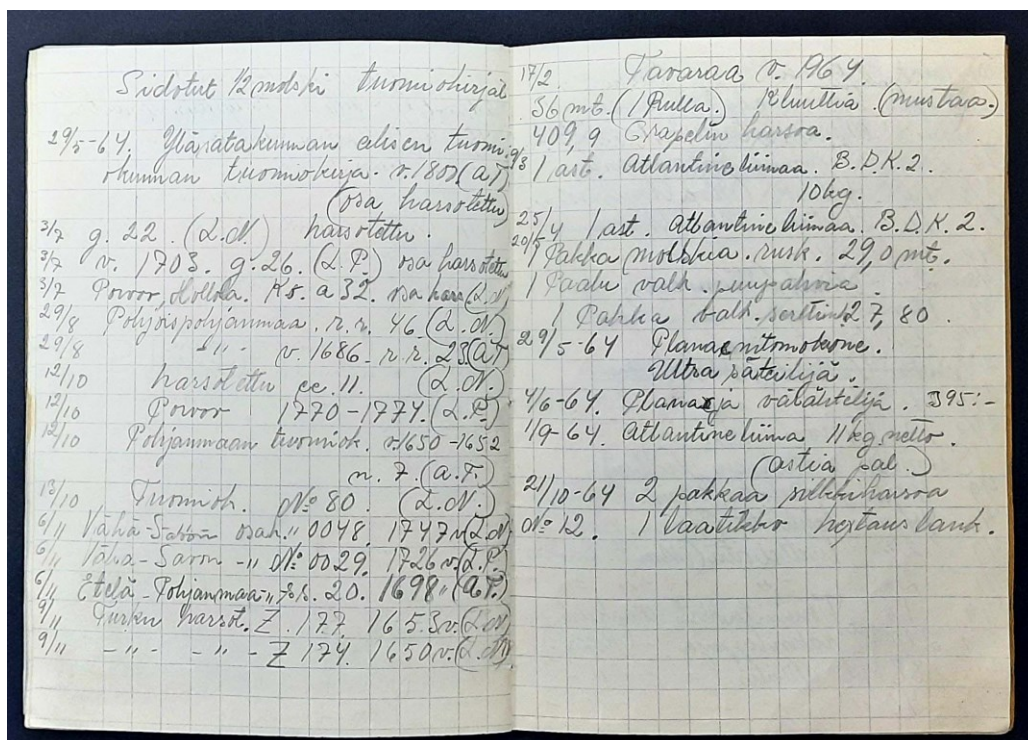 Sidotut 1/2 molski tuomiokirjat
29/5-64. Yläsatakunnan alisen tuomi-
okunnan tuomiokirja. v. 1802 (A.T)
(osa harsotettu)
3/7 g. 22. (L.N.) harsotettu.
3/7 v. 1703. g. 26. (L.P.) osa harsotettu
3/7 Porvoo, Hollola. KS. a 32. osa hars (L.N)
29/8 Pohjoispohjanmaa. r.r. 46 (L.N.)
29/8 -"- v. 1686. r.r. 23 (A.T
12/10 harsotettu cc. 11. (L.N.)
12/10 Porvoo 1770-1774. (L.P.)
12/10 Pohjanmaan tuomiok. v. 1650-1652
n. 7. (A.T.)
13/10 Tuomiok. No 80. (L.N.)
6/11 Vähä-Savon osak. " 0048. 1747 v (L.N)
6/11 Vähä-Savon -"- No 0029. 1726 v. (L.P.
6/11 Etelä-Pohjanmaa -"- s. 20. 1698 " (A.T.)
9/11 Turku harsot. Z. 177. 1653 v. (L.N)
9/11 -"- -"- Z 174. 1650 v. (L.N)
17/2. Tavaraa v. 1964.
36 mt. (1 Rulla.) Kluuttia (mustaa.)
409,9 Grapelin harsoa.
9/3 1 ast. Atlantine liimaa. B.D.K. 2.
10 kg.
25/4 1 ast. Atlantine liimaa. B.D.K. 2.
20/5 1 Pakka molskia. rusk. 29,0 mt.
1 Paalu valk.
1 Pakka valk. sertin 27,80.
29/5-64 Planax nitomokone.
Ultra säteilijä.
4/6-64. Planax ja välähtelijä. 395:-
1/9-64. Atlantine liima 11 kg netto.
(astia pal.)
21/10-64 2 pakkaa silkkiharsoa
No 12. 1 laatikko heftaus lank.